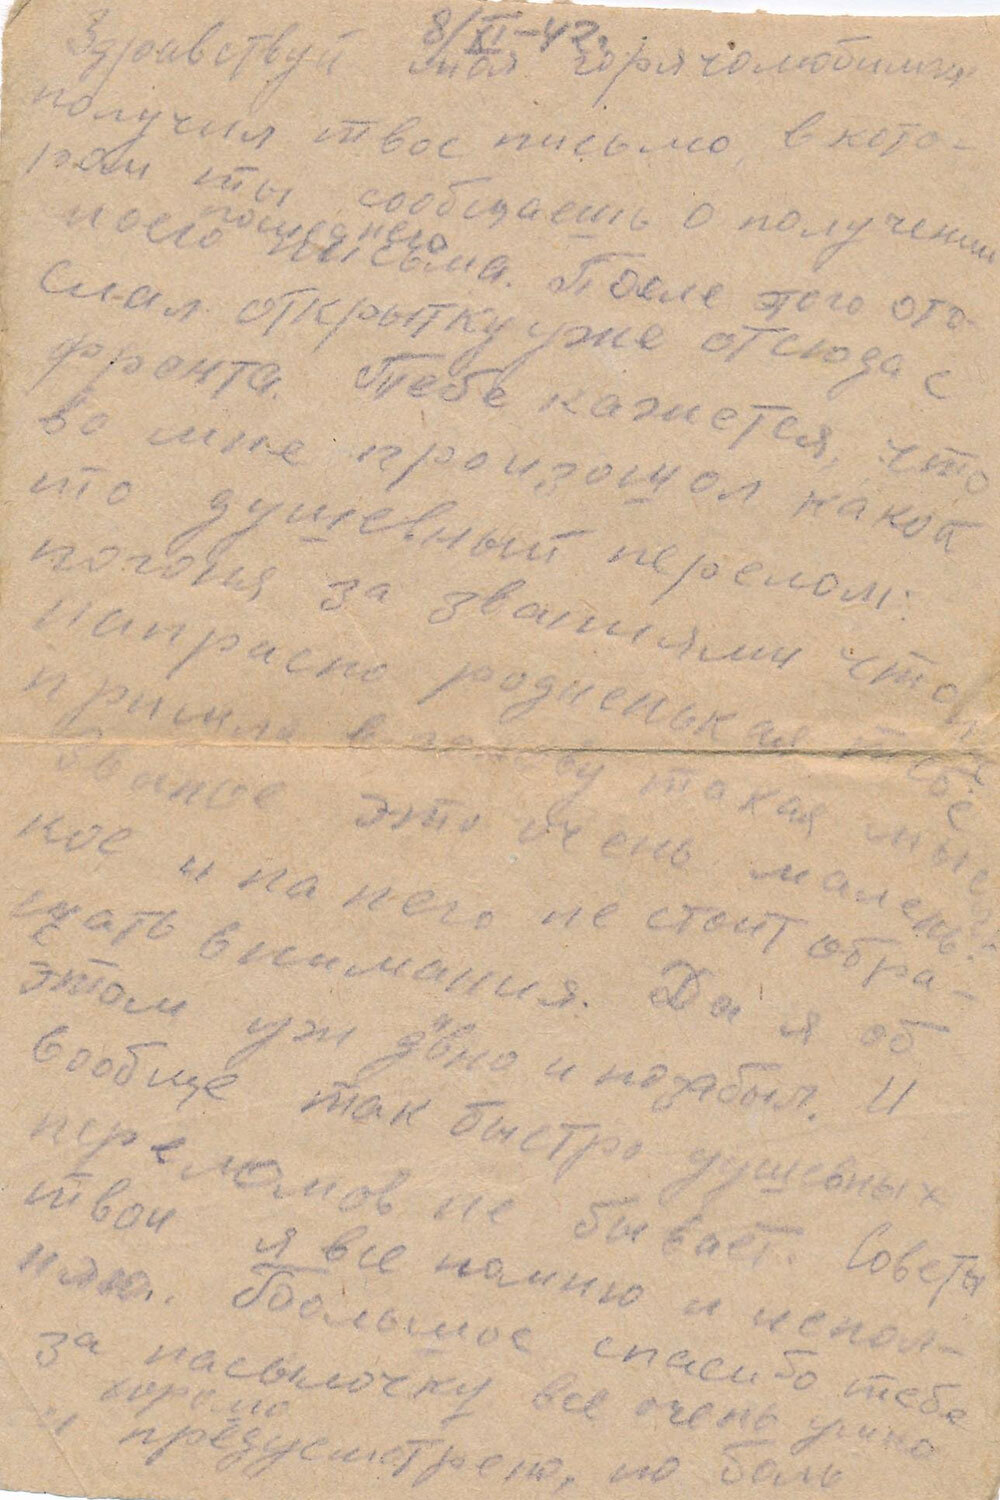 8/XI-42г.
Здравствуй моя горячолюбимая
получил твое письмо, в кото-
ром ты сообщаешь о получении
моего последнего письма. После этого ото-
слал открытку уже отсюда с
фронта. Тебе кажется, что
во мне произошол какой
то душевный перелом:
погоня за званиями что ли
напрасно родненькая тебе
пришла в голову такая мысль
Звание это очень малень-
кое и на него не стоит обра-
щать внимания. Да я об
этом уж давно и позабыл. И
вообще так быстро душевных
переломов не бывает. Советы
твои я все помню и испол-
няю. Большое спасибо тебе
за пасылочку все очень умно
и хорошо предусмотрено, но боль